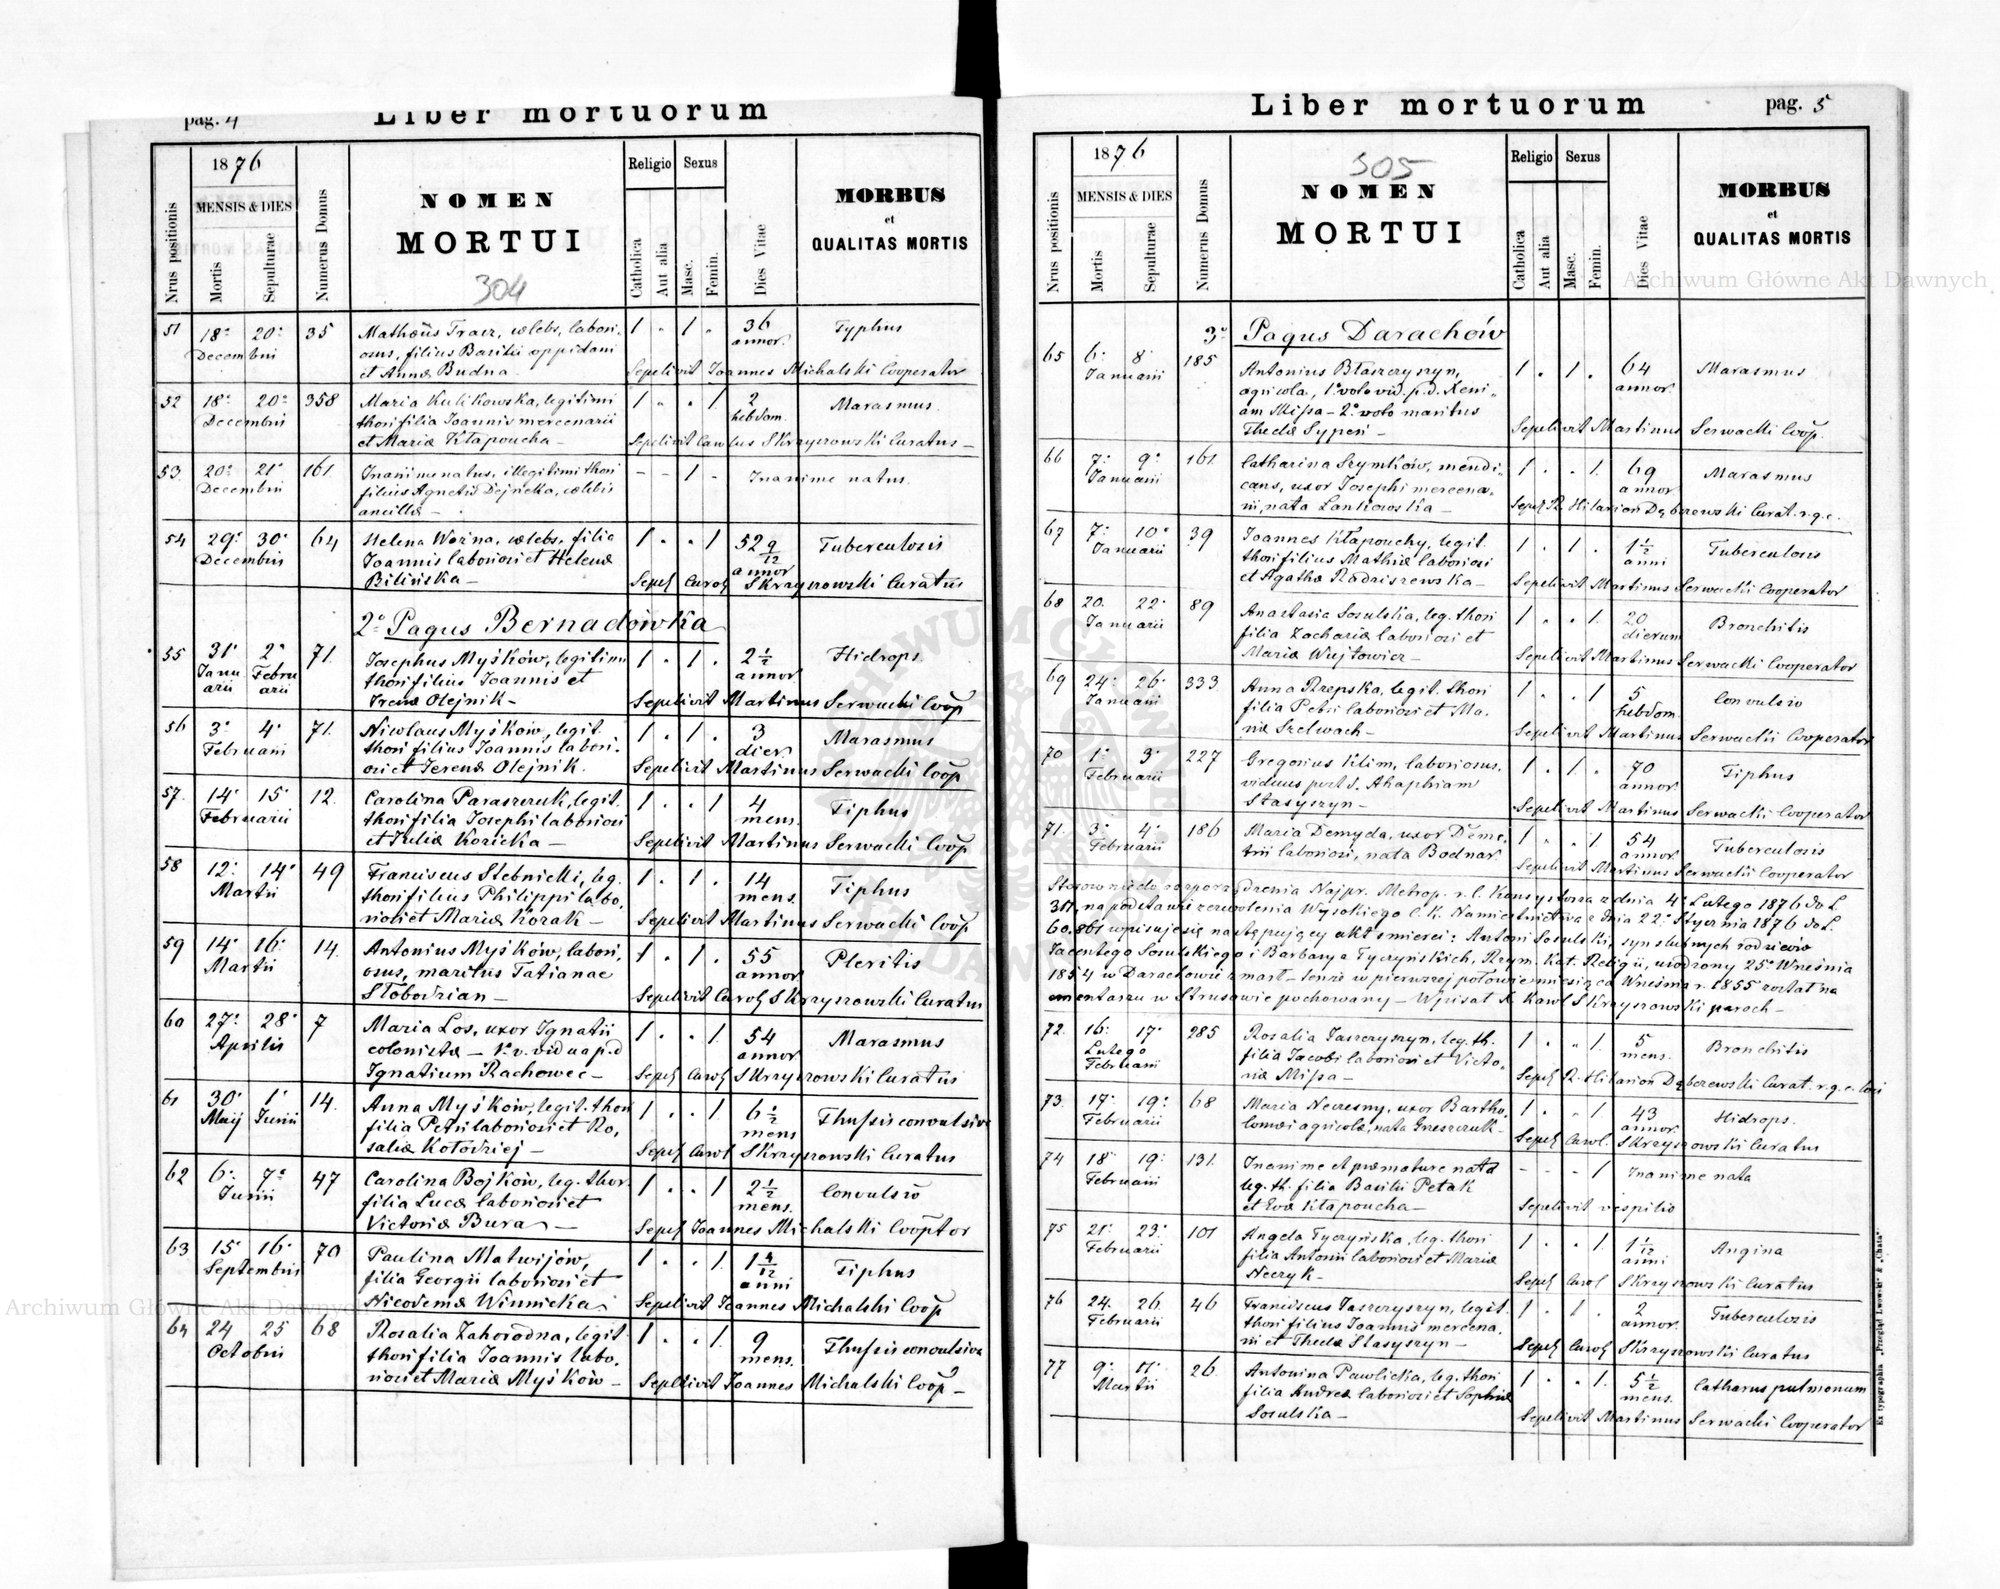 pag. 4
Liber mortuorum
Nrus positionis
1876
MENSIS & DIES
Mortis
Sepulturae
Numerus Domus
NOMEN
MORTUI
304
Religio
Catholica
Aut alia
Sexus
Masc.
Femin.
Dies Vitae
MORBUS
et
QUALITAS MORTIS
51 18a 20a 35 Mathæus Tracz, cælebs, labori- 1 " 1 " 36 Typhus
Decembris osus, filius Basilii oppidani annor.
et Annæ Budna Sepelivit Joannes Michalski Cooperator
52 18a 20a 358 Maria Kulikowska, legitimi 1 " " 1 2 Marasmus.
Decembris thori filia Joannis mercenarii hebdom.
et Mariæ Kłapoucha — Sepelivit Carolus Skrzyszowski Curatus —
53 20a 21a 161 Inanime natus, illegitimi thori - - 1 - Inanime natus.
Decembris filius Agnetis Dejneka, cælebis
ancillæ —
54 29a 30a 64 Helena Woźna, cælebs, filia 1 . . 1 52 9/12 Tuberculosis
Decembris Joannis laboriosi et Helenæ annor
Bilińska — Sepel Carol Skrzyszowski Curatus
2o Pagus Bernadówka
55 31a 2a 71. Josephus Myśków, legitimi 1 . 1 . 2 1/2 Hidrops.
Janu Febru thori filius Joannis et annor.
arii arii Irenæ Olejnik — Sepelivit Martinus Serwacki Coop
56 3a 4a 71. Nicolaus Myśków, legit. 1 . 1 . 3 Marasmus
Februarii thori filius Joannis labori- dier.
osi et Jrenæ Olejnik. Sepelivit Martinus Serwacki Coop
57. 14a 15a 12. Carolina Paraszczuk, legit. 1 . . 1 4 Tiphus
Februarii thori filia Josephi laboriosi mens.
et Juliæ Kozicka — Sepelivit Martinus Serwacki Coop
58 12a 14a 49 Franciscus Slebnicki, leg. 1 . 1 . 14 Tiphus
Martii thori filius Philippi labo- mens.
riosi et Mariæ Kozak — Sepelivit Martinus Serwacki Coop
59 14a 16a 14. Antonius Myśków, labori- 1 . 1 . 55 Pleritis
Martii osus, maritus Tatianae annor
Słobodzian — Sepelivit Carol Skrzyszowski Curatus
60 27a 28a 7 Maria Los, uxor Ignatii 1 . . 1. 54 Marasmus
Aprilis colonistæ — 1o v. vidua p.d annor
Ignatium Rachowec — Sepel Carol Skrzyszowski Curatus
61 30a 1a 14. Anna Myśków, legit. thori 1 . . 1 6 1/2 Thussis convulsiva
Maij Junii filia Petri laboriosi et Ro- mens
saliæ Kołodziej — Sepel Carol Skrzyszowski Curatus
62 6a 7a 47 Carolina Bojków, leg. thor. 1 . . 1 2 1/2 Convulsio
Junii filia Lucæ laboriosi et mens.
Victoriæ Bura — Sepel Joannes Michalski Cooptor
63 15a 16a 70 Paulina Matwijów, 1 . . 1. 1 4/12 Tiphus
Septembris filia Georgii laboriosi et anni
Nicodemæ Winnicka. Sepelivit Joannes Michalski Coop
64 24 25 68 Rosalia Zahorodna, legit. 1 . . 1. 9 Thussis convulsiva
Octobris thori filia Joannis labo- mens.
riosi et Mariæ Myśków — Sepelivit Joannes Michalski Coop —
pag. 5
Liber mortuorum
Nrus positionis
1876
MENSIS & DIES
Mortis
Sepulturae
Numerus Domus
305
NOMEN
MORTUI
Religio
Catholica
Aut alia
Sexus
Masc.
Femin.
Dies Vitae
MORBUS
et
QUALITAS MORTIS
3o Pagus Darachów
65 6a 8a 185 Antonius Błaszczyszyn, 1 . 1 . 64 Marasmus
Januarii agricola, 1o voto vid. p.d. Xeni- annor.
am Missa — 2o voto maritus
Theclæ Sypeń — Sepelivit Martinus Serwacki Coop.
66 7a 9a 161. Catharina Szymków, mendi- 1 . . 1. 69 Marasmus
Januarii cans, uxor Josephi mercena- annor
rii, nata Lankowska — Sepel R. Hilarion Dąbczewski Curat. r. g. c.
67 7a 10a 39 Joannes Kłapouchy, legit. 1 . 1 . 1 1/2 Tuberculosis
Januarii thori filius Mathiæ laboriosi anni
et Agathæ Radziszewska — Sepelivit Martinus Serwacki Cooperator
68 20. 22a 89 Anastasia Sosulska, leg. thori 1 . . 1. 20 Bronchitis
Januarii filia Zachariæ laboriosi et dierum
Mariæ Wujtowicz — Sepelivit Martinus Serwacki Cooperator
69 24a 26a 333. Anna Rzepska, legit. thori 1 . . 1 5 Convulsio
Januarii filia Petri laboriosi et Ma- hebdom.
riæ Szelwach — Sepelivit Martinus Serwacki Cooperator
70 1a 3a 227 Gregorius Klim, laboriosus, 1 . 1. . 70 Tiphus
Februarii viduus post d. Ahaphiam annor.
Stasyszyn — Sepelivit Martinus Serwacki Cooperator
71. 3a 4a 186 Maria Demyda, uxor Deme- 1 . . 1. 54 Tuberculosis
Februarii trii laboriosi, nata Bodnar. annor.
Sepelivit Martinus Serwacki Cooperator
Stosownie do rozporządzenia Najpr. Metrop. r. l. Konsystorza z dnia 4o Lutego 1876 do L.
317, na podstawie zezwolenia Wysokiego C. K. Namiestnictwa z dnia 22o Stycznia 1876 do L.
60.861 wpisuje się następujący akt śmierci: Antoni Sosulski, syn ślubnych rodziców
Jacentego Sosulskiego i Barbary z Tyczyńskich, Rzym. Kat. Religii, urodzony 25o Września
1854 w Darachowie zmarł — tenże w pierwszej połowie miesiąca Września r. 1855 został na
cmentarzu w Strusowie pochowany — Wpisał X. Karol Skrzyszowski paroch —
72. 16a 17a 285 Rosalia Jaszczyszyn, leg. th. 1 . " 1. 5 Bronchitis
Lutego filia Jacobi laboriosi et Victo- mens.
Februarii riæ Missa — Sepel R. Hilarion Dąbczewski Curat. r. g. c. loci
73. 17a 19a 68 Maria Necresny, uxor Bartho- 1 . " 1. 43 Hidrops.
Februarii lomæi agricolæ, nata Greszczuk — annor.
Sepel Carol. Skrzyszowski Curatus
74 18a 19a 131. Inanime et præmature nata - - - 1 Inanime nata
Februarii leg. th. filia Basilii Petak
et Evæ Kłapoucha — Sepelivit vespilio
75 21a 23a 101 Angela Tyczyńska, leg. thori 1 . . 1. 1 1/12 Angina
Februarii filia Antonii laboriosi et Mariæ anni
Neczyk — Sepel Carol Skrzyszowski Curatus
76 24. 26. 46 Franciscus Jaszczyszyn, legit. 1 . 1 . 2 Tuberculosis
Februarii thori filius Joannis mercena- annor.
rii et Theclæ Stasyszyn — Sepel Carol Skrzyszowski Curatus
77 9a 11a 26. Antonina Pawlicka, leg. thori 1 . . 1. 5 1/2 Catharus pulmonum
Martii filia Andreæ laboriosi et Sophiæ mens.
Sosulska — Sepelivit Martinus Serwacki Cooperator
Ex typographia „Przegląd Lwowski" & „Chata".
Archiwum Główne Akt Dawnych
Archiwum Główne Akt Dawnych
ARCHIWUM GŁÓWNE AKT DAWNYCH